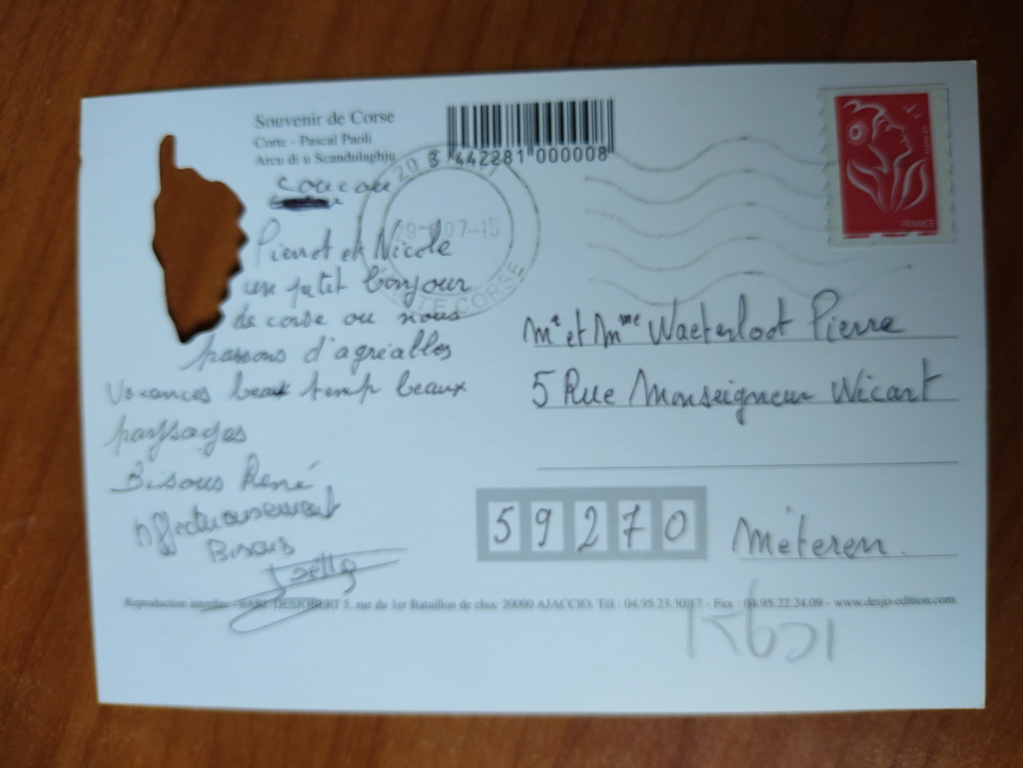 Souvenir de Corse
Corte - Pascal Paoli
Arcu di u Scandulaghju
3 442281 000008
20
29- 07-15
HTE CORSE
FRANCE
coucou
Pierrot et Nicole
un petit bonjour
de corse ou nous
passons d'agréalles
Vacances beaux temp beaux
paysages
Bisous René
Affectueusement
Bisous
Mr et Mme Waeterloot Pierre
5 Rue Monseigneur Wicart
59270
Méteren.
Reproduction interdite - SARL DESJOBERT 5, rue du 1er Bataillon de choc 20090 AJACCIO. Tél : 04.95.23.30.17 - Fax : 04.95.22.24.09 - www.desjo-edition.com